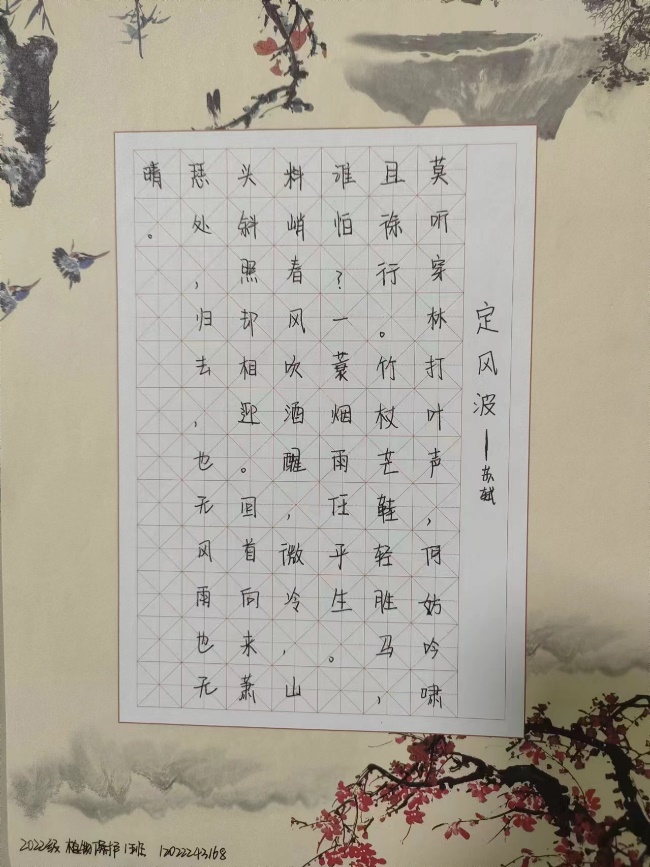 定风波—苏轼
莫听穿林打叶声，何妨吟啸
且徐行。竹杖芒鞋轻胜马，
谁怕？一蓑烟雨任平生。
料峭春风吹酒醒，微冷，山
头斜照却相迎。回首向来萧
瑟处，归去，也无风雨也无
晴。
2022级 植物保护1班 12022243168